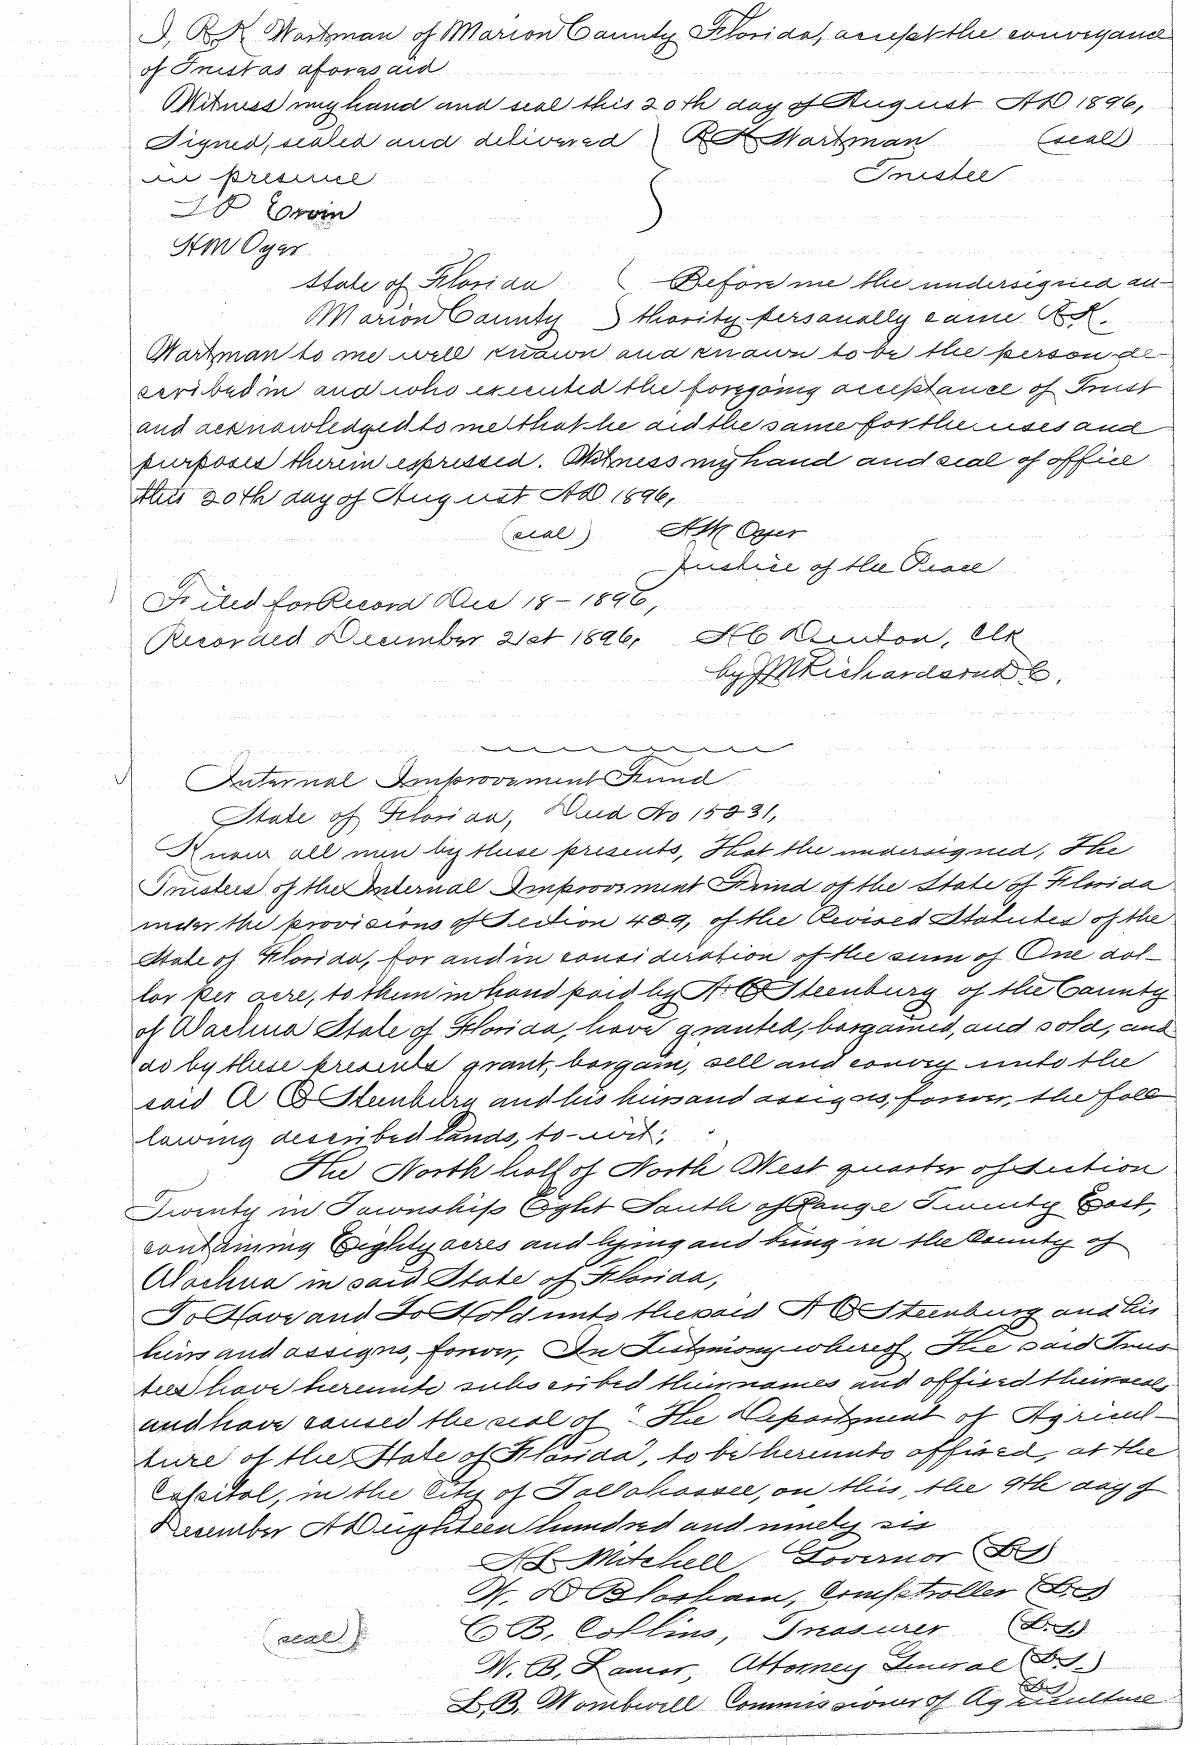 I, R K Wartman of Marion County Florida, accept the conveyance
of Trust as aforesaid
Witness my hand and seal this 20th day of August AD 1896,
Signed, sealed and delivered R K Wartman (seal)
in presence Trustee
Ervin
H M Oyer
State of Florida Before me the undersigned au-
Marion County thority personally came R K.
Wartman to me well known and known to be the person de-
scribed in and who executed the foregoing acceptance of Trust
and acknowledged to me that he did the same for the uses and
purposes therein expressed. Witness my hand and seal of office
this 20th day of August AD 1896,
(seal) H M Oyer
Justice of the Peace
Filed for Record Dec 18 - 1896,
Recorded December 21st 1896, H C Denton, Clk
by J M Richardson D C.
Internal Improvement Fund
State of Florida, Deed No 15231,
Know all men by these presents, That the undersigned, The
Trustees of the Internal Improvement Fund of the State of Florida
under the provisions of Section 429, of the Revised Statutes of the
State of Florida, for and in consideration of the sum of One dol-
lar per acre, to them in hand paid by A O Steenburg of the County
of Alachua State of Florida, have granted, bargained, and sold, and
do by these presents grant, bargain, sell and convey unto the
said A O Steenburg and his heirs and assigns, forever, the fol
lowing described lands, to-wit;
The North half of North West quarter of Section
Twenty in Township Eght South of Range Twenty East,
containing Eighty acres and lying and being in the County of
Alachua in said State of Florida,
To Have and To Hold unto the said A O Steenburg and his
heirs and assigns, forever, In Testimony whereof, The said Trus
tees have hereunto subscribed their names and affixed their seals
and have caused the seal of "The Department of Agricul-
ture of the State of Florida", to be hereunto affixed, at the
Capitol, in the City of Tallahassee, on this, the 9th day of
December AD eighteen hundred and ninety six
H L Mitchell Governor (L S)
W. D Bloxham, Comptroller (L. S)
C B. Collins, Treasurer (L. S.)
(seal) W. B. Lamar, Attorney General (L. S.)
L. B. Wombwell Commissioner of Agriculture (L S)